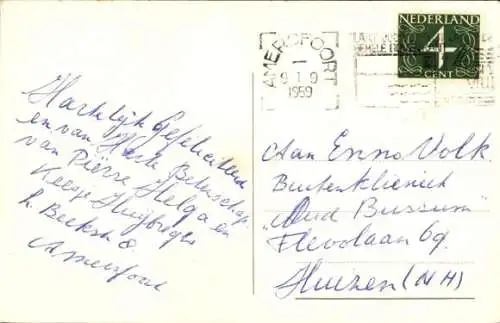 Hartelijk Gefeliciteerd
en van Harte Beterschap
van Pierre Helga en
Keesje Huijbregts
h. Beekstr 8.
Amersfoort
AMERSFOORT
1959
NEDERLAND
4
CENT
Aan Enno Volk
Buitenkliniek
"Oud Bussum"
Flevolaan 69.
Huizen (NH)